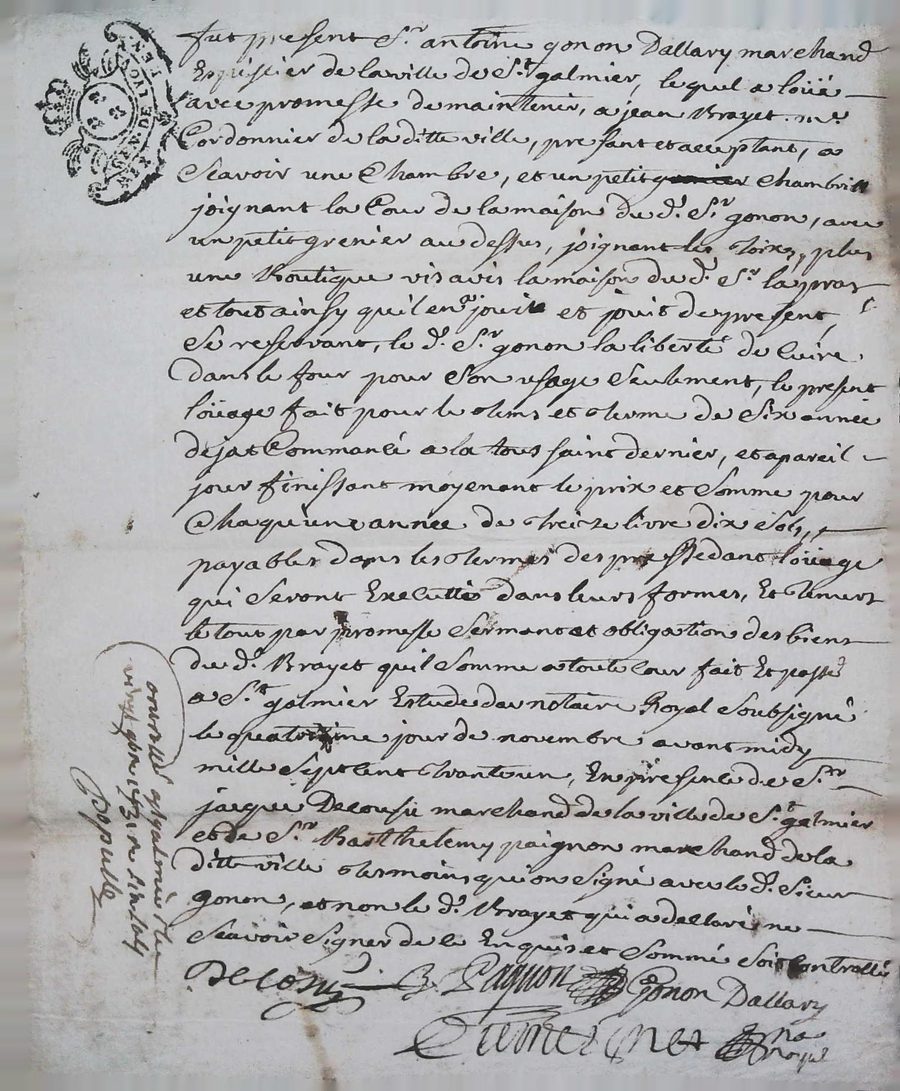 GEN. DE LYON
fut present Sr. antoine gonon Dallary marchand
Espissier de la ville de St. galmier, le quel a loüé
avec promesse de maintenir, a jean Brayet me.
Cordonnier de la ditte ville, presant et acceptant, a
Scavoir une Chambre, et un petit chambrin
joignant la Cour de la maison du d. Sr. gonon, avec
un petit grenier au dessus, joignant les toixs, plus
une Boutique vis avis la maison du d. Sr. lapras
et tout ainsy quil en jouit et jouit de present,
Se reservant, le d. Sr. gonon la liberté de Cuire
dans le four pour Son usage Seulement, le present
loüage fait pour le tems et terme de Six année
dejat Commancé a la tous saint dernier, et a pareil
jour finissant moyenant le prix et Somme pour
Chaqu'une année de treize livre dix Sols,
payables dans les termes des pressedant loüage
qui Seront Executtés dans leurs formes, Et teneurs
le tout par promesse Sermant et obligation des biens
du d. Brayet quil Somme a toute Cour fait Et passé
a St. galmier Estude du notaire Royal Soubsigné
le quatrizime jour de novembre avant midy
mille Sept Cent trante un, En presence de Sr.
jacque Decousu marchand de la ville de St. galmier
et de Sr. Barthelemy paignon marchand de la
ditte ville temoins qui on Signé avec le d. Sieur
gonon, et non le d. Brayet qui a dellaré ne
Scavoir Signer de ce Enquis et Sommé Soit Controllé
B Pagnon Gonon Dallary
no royal
Controllé a St galmier le
vingt 9bre 1731 R Six sols